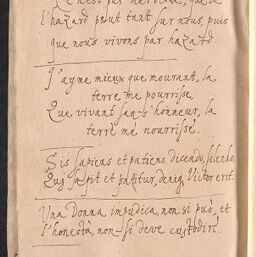 C'n'est pas merveille, que le
l'hazard peut tant sur nous, puis
que nous vivons par hazard.
J'ayme mieux que mourant, la
terre me pourrisse,
Que vivant sans honneur, la
terre me nourrisse.
Sis sapiens et patiens, dicendo, silendo
Qui sapit et patitur, deniq, Victor erit.
Una Donna impudica, non si può, et
l'honestà, non si deve custodire.